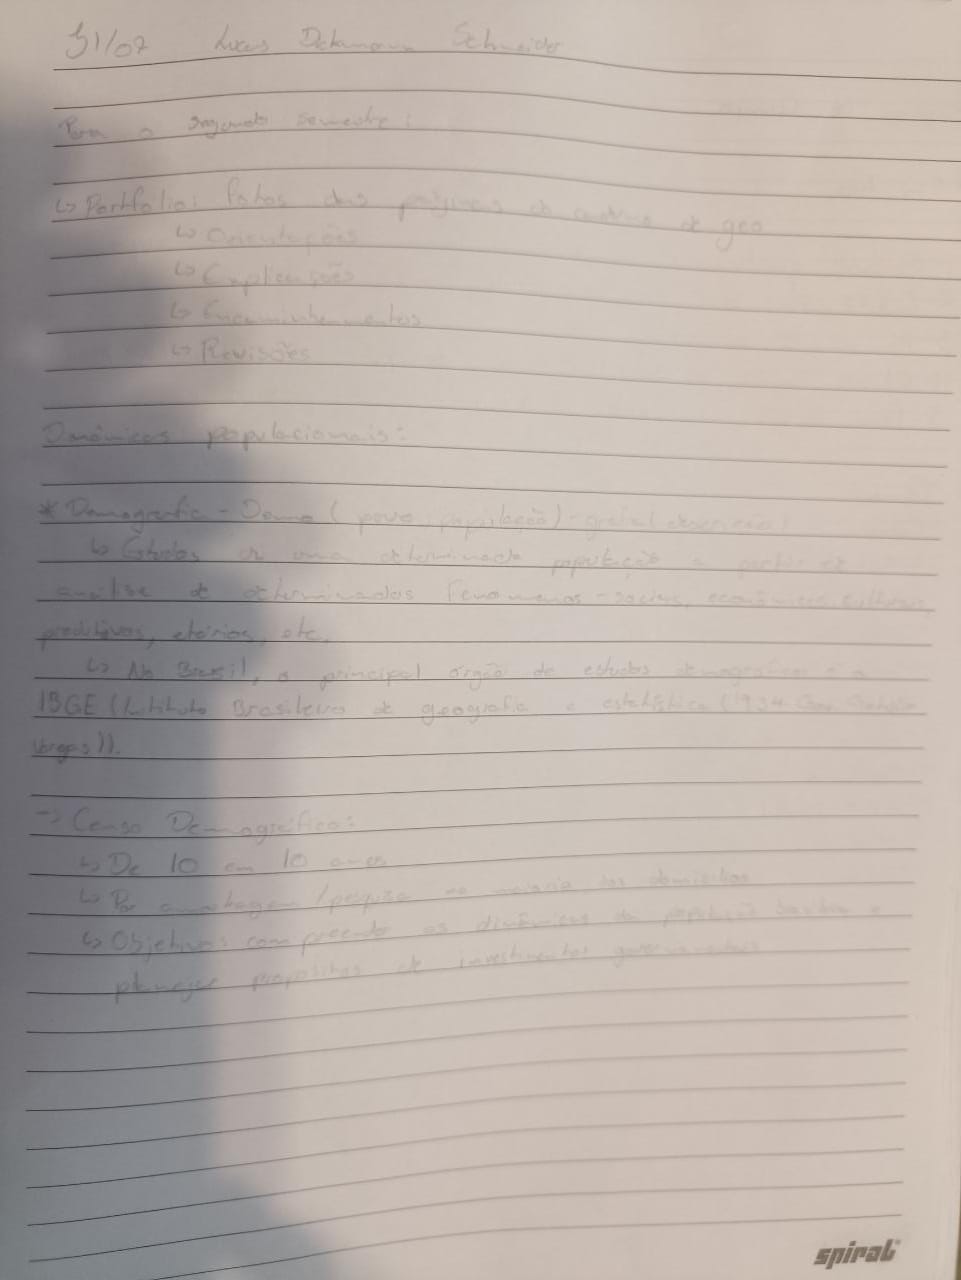 31/07 Lucas Schneider
Para o segundo semestre:
↳ Portfólio: fotos das páginas do caderno de geo
↳ Orientações
↳ Explicações
↳ Encaminhamentos
↳ Revisões
Dinâmicas populacionais:
* Demografia - Demo (povo, população) - grafia (descrição)
↳ Estudos de uma determinada população a partir da
análise de determinados fenômenos - sociais, econômicos, culturais,
etários, etc.
↳ No Brasil, o principal órgão de estudos demográficos é o
IBGE (Instituto Brasileiro de geografia e estatística (1934 Getúlio
Vargas)).
→ Censo Demográfico:
↳ De 10 em 10 anos
↳ Por amostragem/pesquisa na maioria dos domicílios
↳ Objetivos: compreender as dinâmicas da população e
planejar propostas de investimentos governamentais
spiral